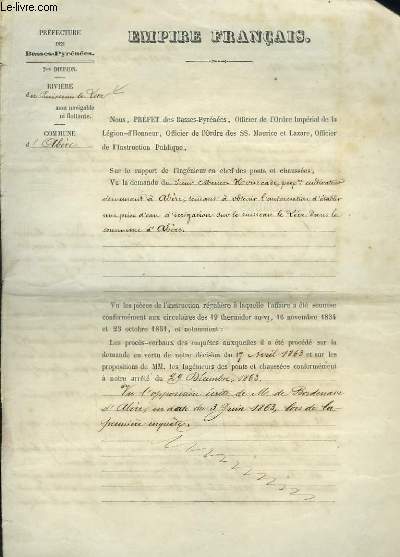 PRÉFECTURE
DES
Basses-Pyrénées.
2me DIVISION.
RIVIÈRE
du Ruisseau le Lées
non navigable
ni flottable.
COMMUNE
d'Abère
EMPIRE FRANÇAIS.
Nous, PRÉFET des Basses-Pyrénées, Officier de l'Ordre Impérial de la
Légion-d'Honneur, Officier de l'Ordre des SS. Maurice et Lazare, Officier
de l'Instruction Publique,
Sur le rapport de l'Ingénieur en chef des ponts et chaussées,
Vu la demande du Sieur cultivateur
demeurant à Abère, tendant à obtenir l'autorisation d'établir
une prise d'eau d'irrigation sur le ruisseau le dans la
commune d'Abère.
Vu les pièces de l'instruction régulière à laquelle l'affaire a été soumise
conformément aux circulaires des 19 thermidor an VI, 16 novembre 1834
et 23 octobre 1851, et notamment:
Les procès-verbaux des enquêtes auxquelles il a été procédé sur la
demande en vertu de notre décision du 17 Avril 1863 et sur les
propositions de MM. les Ingénieurs des ponts et chaussées conformément
à notre arrêté du 29 Décembre 1863.
Vu l'opposition écrite de M. de Bordenave
d'Abère, en date du 3 Juin 1863, lors de la
première enquête.
www.le-livre.com